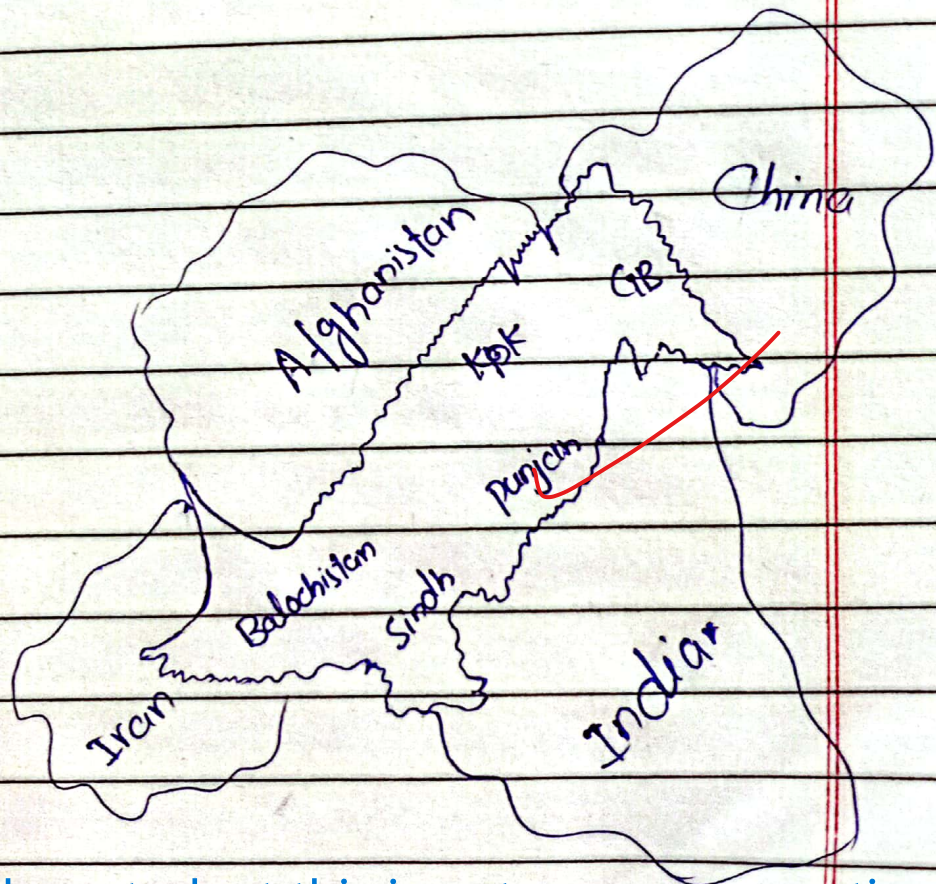 China
Afghanistan
GB
KPK
Punjan
Balochistan
Sindh
India
Iran